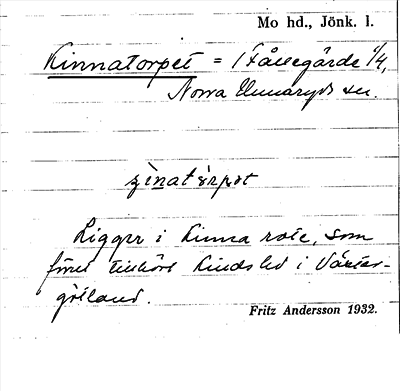 Mo hd., Jönk. l.
Kinnatorpet = 1 Fållegårde 1/4,
Norra Unnaryds sn.
Ligger i Kinna rote, som
förut tillhört Kinds hd i Väster-
götland.
Fritz Andersson 1932.